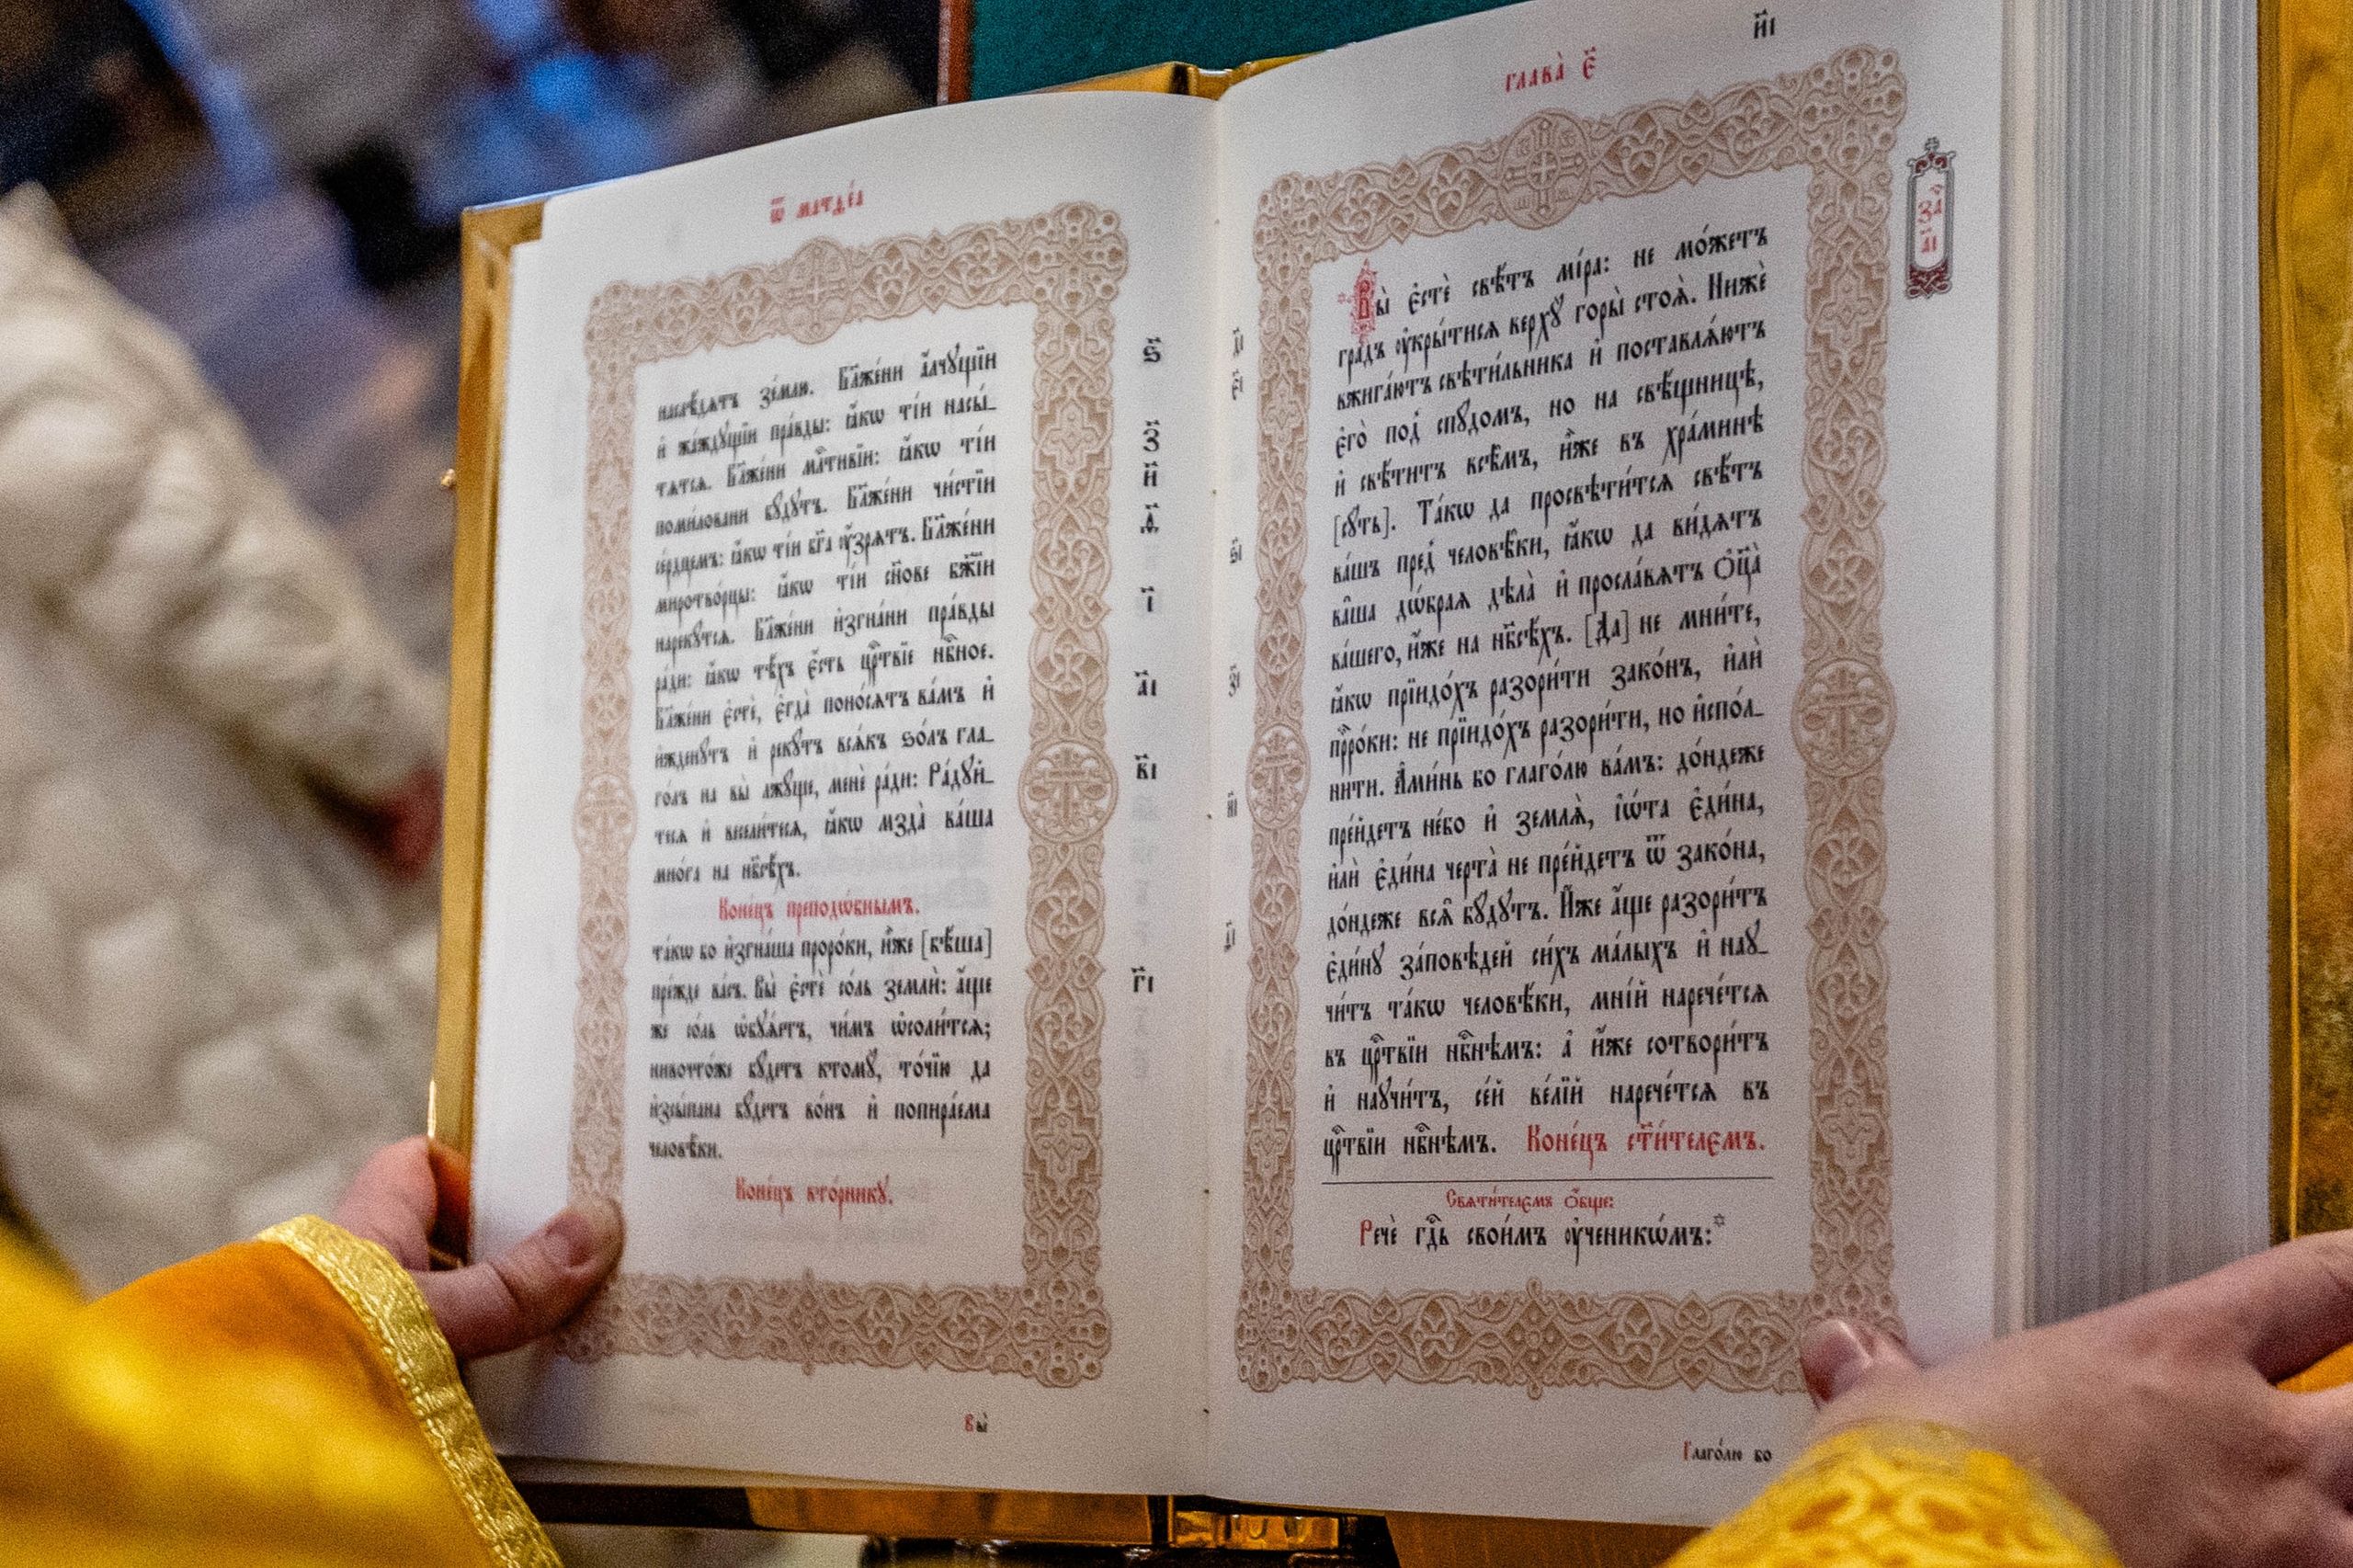 ѿ матѳе́а
наслѣ́дѧтъ зе́млю. Бл҃же́ни а҆́лчꙋщїи
и҆ жа́ждꙋщїи пра́вды: ꙗ҆́кѡ ті́и насы́_
тѧтсѧ. Бл҃же́ни млⷭ҇тивїи: ꙗ҆́кѡ ті́и
поми́ловани бꙋ́дꙋтъ. Бл҃же́ни чи́стїи
се́рдцемъ: ꙗ҆́кѡ ті́и бг҃а ᲂу҆́зрѧтъ. Бл҃же́ни
миротво́рцы: ꙗ҆́кѡ ті́и сн҃ове бж҃їи
нарекꙋ́тсѧ. Бл҃же́ни и҆згна́ни пра́вды
ра́ди: ꙗ҆́кѡ тѣ́хъ є҆́сть црⷭ҇твїе нбⷭ҇ное.
Бл҃же́ни є҆стѐ, є҆гда̀ поно́сѧтъ ва́мъ и҆
и҆жденꙋ́тъ и҆ рекꙋ́тъ всѧ́къ ѕо́лъ гла_
го́лъ на вы̀ лжꙋ́ще, менѐ ра́ди: Ра́дꙋй_
тесѧ и҆ весели́тесѧ, ꙗ҆́кѡ мзда̀ ва́ша
мно́га на нб҃сѣ́хъ.
Коне́цъ преподѡ́бнымъ.
та́кѡ бо и҆згна́ша проро́ки, и҆̀же [бѣ́ша]
пре́жде ва́съ. Вы̀ є҆стѐ со́ль землѝ: а҆́ще
же со́ль ѡ҆бꙋѧ́етъ, чи́мъ ѡ҆соли́тсѧ;
ничто́же бꙋ́детъ ктомꙋ̀, то́чїю да
и҆зсы́пана бꙋ́детъ во́нъ и҆ попира́ема
человѣ̑ки.
Коне́цъ вто́рникꙋ.
ѕ҃
з҃
и҃
ѳ҃
і҃
а҃і
в҃і
г҃і
Вы̀
глава̀ є҃
и҃і
за҃
а҃і
д҃і
є҃і
ѕ҃і
з҃і
и҃і
Вы̀ є҆стѐ свѣ́тъ мі́ра: не мо́жетъ
гра́дъ ᲂу҆кры́тисѧ верхꙋ̀ горы̀ стоѧ̀. Нижѐ
вжига́ютъ свѣти́льника и҆ поставлѧ́ютъ
є҆го̀ под̾ спꙋ́домъ, но на свѣ́щницѣ,
и҆ свѣ́титъ всѣ̑мъ, и҆̀же въ хра́минѣ
[сꙋ́ть]. Та́кѡ да просвѣти́тсѧ свѣ́тъ
ва́шъ пред̾ человѣ̑ки, ꙗ҆́кѡ да ви́дѧтъ
ва̑ша дѡ́браѧ дѣла̀ и҆ просла́вѧтъ ѻ҆ц҃а̀
ва́шего, и҆́же на нб҃сѣ́хъ. [Да] не мни́те,
ꙗ҆́кѡ прїидо́хъ разори́ти зако́нъ, и҆лѝ
прⷪ҇ро́ки: не прїидо́хъ разори́ти, но и҆спо́л_
нити. А҆ми́нь бо глаго́лю ва́мъ: до́ндеже
пре́йдетъ не́бо и҆ землѧ̀, і҆ѡ́та є҆ди́на,
и҆лѝ є҆ди́на черта̀ не пре́йдетъ ѿ зако́на,
до́ндеже всѧ̑ бꙋ́дꙋтъ. И҆́же а҆́ще разори́тъ
є҆ди́нꙋ за́повѣдей си́хъ ма́лыхъ и҆ наꙋ_
чи́тъ та́кѡ человѣ́ки, мні́й нарече́тсѧ
въ црⷭ҇твїи нбⷭ҇нѣмъ: а҆ и҆́же сотвори́тъ
и҆ наꙋчи́тъ, се́й ве́лїй нарече́тсѧ въ
црⷭ҇твїи нбⷭ҇нѣмъ. Коне́цъ ст҃и́телємъ.
Свѧти́телємъ ѻ҆́бще:
Речѐ гдⷭ҇ь свои̑мъ ᲂу҆ченикѡ́мъ:*
Глаго́лю бо